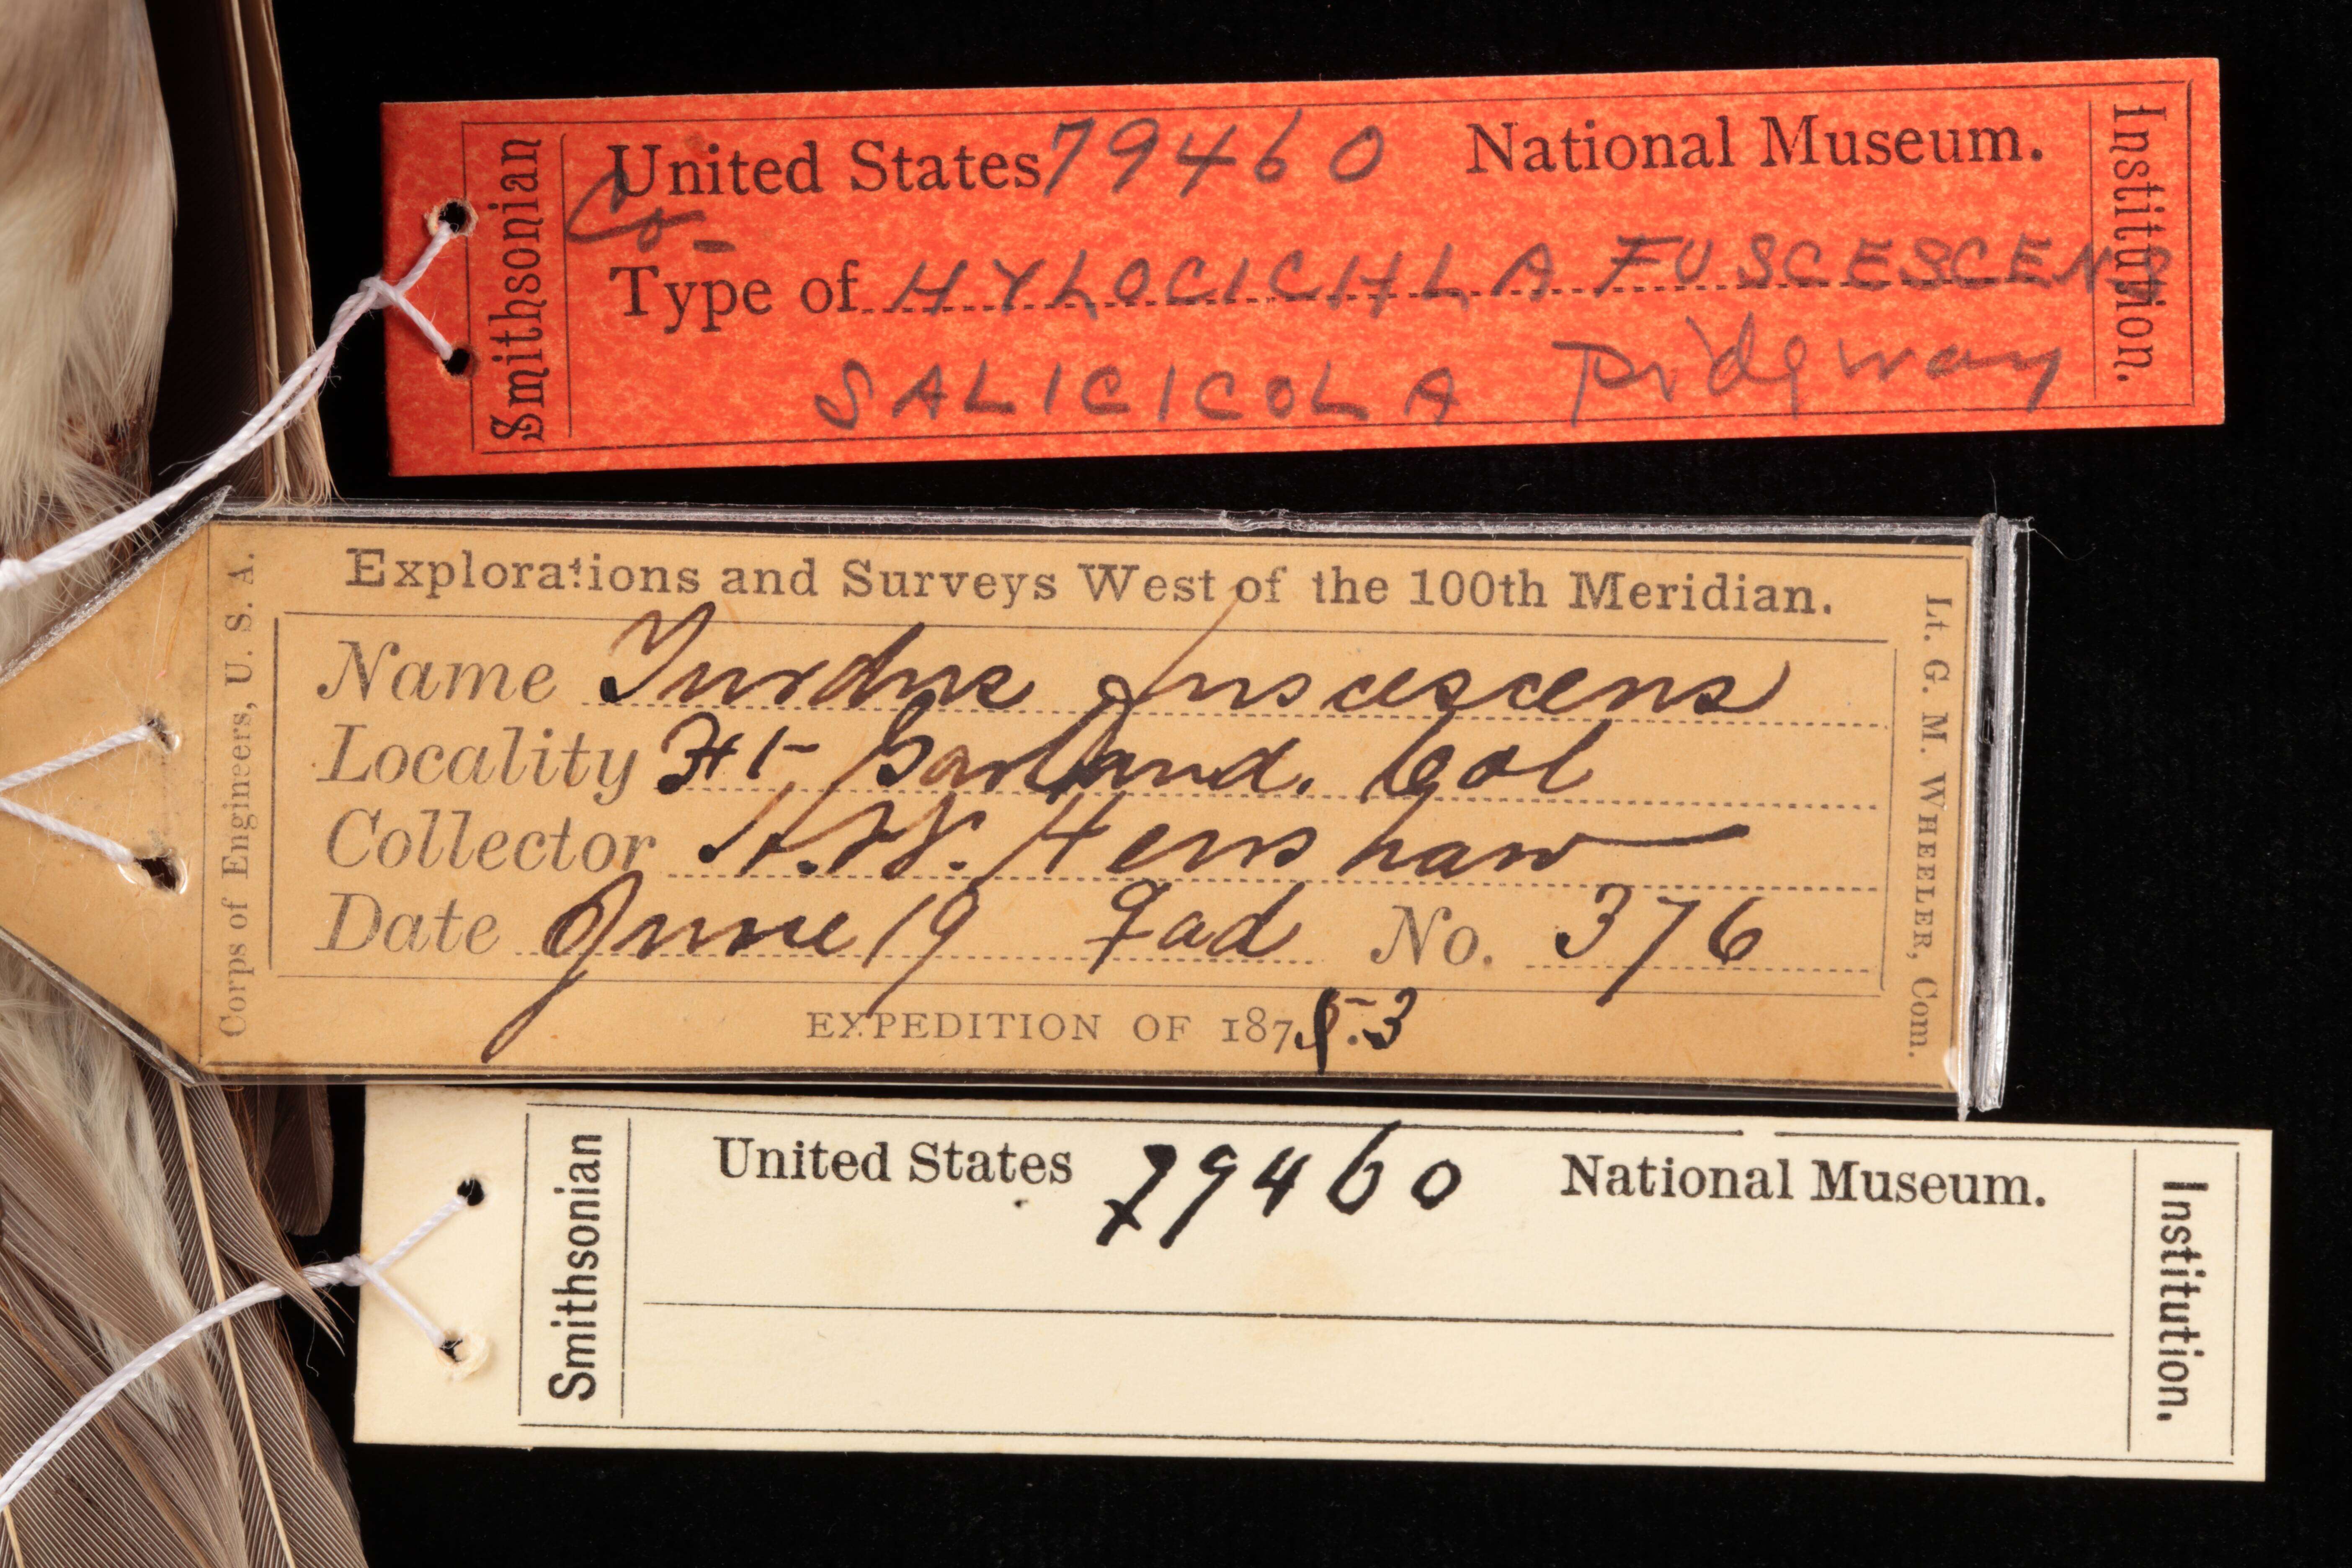 Smithsonian
United States 79460 National Museum.
Co-
Type of HYLOCICHLA FUSCESCENS
SALICICOLA Ridgway
Institution.
Corps of Engineers, U. S. A.
Explorations and Surveys West of the 100th Meridian.
Name Turdus fuscescens
Locality Ft Garland. Col
Collector H. W. Henshaw
Date June 19 ♀ ad No. 376
EXPEDITION OF 187 3
Lt. G. M. WHEELER, Com.
Smithsonian
United States 79460 National Museum.
Institution.